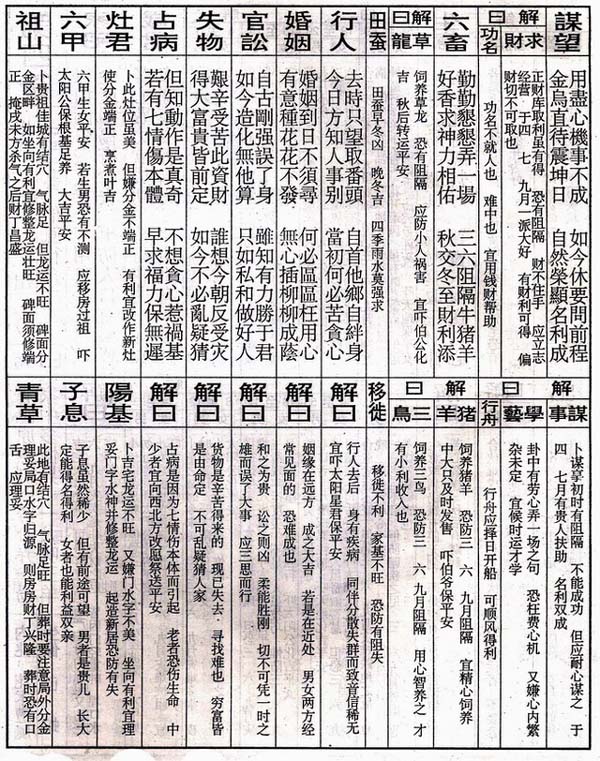 謀望
用盡心機事不成 如今休要問前程
金烏直待震坤日 自然榮顯名利成
解曰
求財
正财库取利虽有得 恐有阻隔 财不住手 应立志
经营 于四 七 九月一派大好 有财利可得 偏
财切不可取也
功名
功名不就人也 难中也 宜用钱财帮助
六畜
勤勤懇懇弄一場 三六阻隔牛猪羊
好香求神力相佑 秋交冬至財利添
解曰
草龍
饲养草龙 恐有阻隔 应防小人祸害 宜吓伯公化
吉 秋后转运平安
田蚕
田蚕早冬凶 晚冬吉 四季雨水莫强求
行人
去時只望取番頭 自首他鄉自絆身
今日方知人事别 當初何必苦貪心
婚姻
婚姻到日不須尋 何必區區枉用心
有意種花花不發 無心插柳柳成陰
官訟
自古剛强誤了身 雖知有力勝于君
如今造化無他算 只如私和做好人
失物
艱辛受苦此資財 誰想今朝反受災
得大富貴皆前定 如今不必亂疑猜
占病
但知動作是真奇 不想貪心惹禍基
若有七情傷本體 早求福力保無遲
灶君
卜此灶位虽美 但嫌分金不端正 有利宜改作新灶
使分金端正 烹煮叶吉
六甲
六甲生女平安 若生男恐有不测 应移房过祖 吓
太阳公保根基足养 大吉平安
祖山
卜贵祖佳城有结穴 气脉足 但龙运不旺 碑面分
金区畔 如坐向有利宜修整龙运壮旺 碑面须修端
正 掩戌未方杀气之后财丁昌盛
解曰
謀事
卜谋享初时有阻隔 不能成功 但应耐心谋之 于
四 七月有贵人扶助 名利双成
學藝
卦中有劳心弄一场之句 恐枉费心机 又嫌心内繁
杂未定 宜候时运才学
行舟
行舟应择日开船 可顺风得利
解曰
猪羊
饲养猪羊 恐防三 六 九月阻隔 宜精心饲养
中大只及时发售 吓伯爷保平安
三鳥
饲养三鸟 恐防三 六 九月阻隔 用心智养之 才
有小利收入也
移徙
移徙不利 家基不旺 恐防有阻失
解曰
行人去后 身有疾病 同伴分散失群而致音信稀无
宜吓太阳星君保平安
解曰
姻缘在远方 成之大吉 若是在近处 男女两方经
常见面的 恐难成也
解曰
和之为贵 讼之则凶 柔能胜刚 切不可凭一时之
雄而误了大事 应三思而行
解曰
货物是辛苦得来的 现已失去 寻找难也 穷富皆
是由命定 不可乱疑猜人家
解曰
占病是因为七情伤本体而引起 老者恐伤生命 中
少者宜向西北方改愿祭送平安
陽基
卜吉宅龙运不旺 又嫌门字水不美 坐向有利宜理
妥门字水神并修整龙运 起造新居恐防有失
子息
子息虽然稀少 但有前途可望 男者是贵儿 长大
定能得名得利 女者也能利益双亲
青草
此地有结穴 气脉足旺 但葬时要注意局外分金
理妥局口水字归源 则房房财丁兴隆 葬时恐有口
舌 应理妥